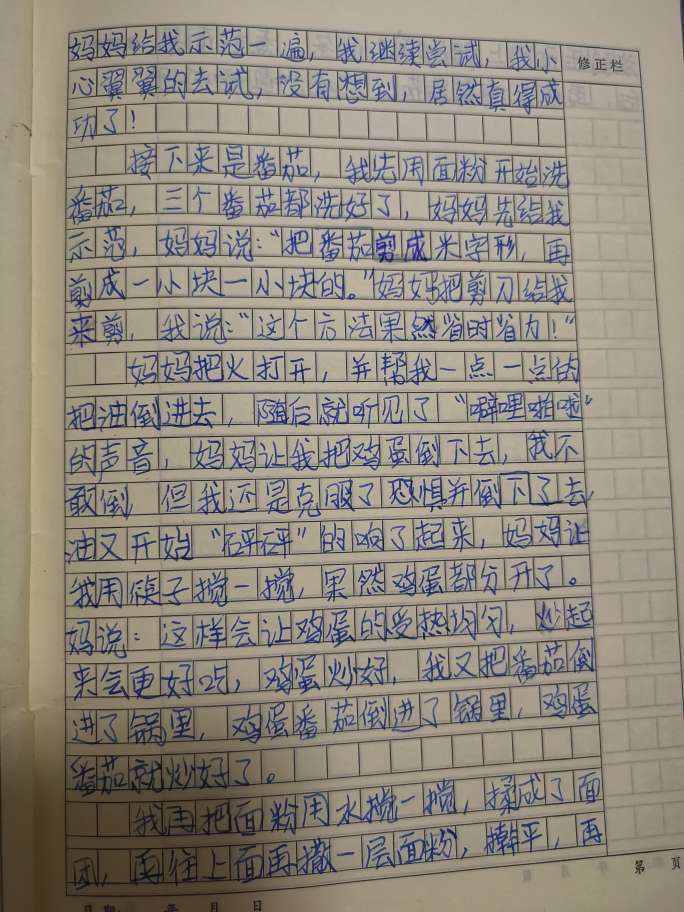 妈妈给我示范一遍，我继续尝试，我小
修正栏
心翼翼的去试，没有想到，居然真得成
功了！
接下来是番茄，我先用面粉开始洗
番茄，三个番茄都洗好了，妈妈先给我
示范，妈妈说：“把番茄剪成米字形，再
剪成一小块一小块的。”妈妈把剪刀给我
来剪，我说：“这个方法果然省时省力！”
妈妈把火打开，并帮我一点一点的
把油倒进去，随后就听见了“噼哩啪啦”
的声音，妈妈让我把鸡蛋倒下去，我不
敢倒 但我还是克服了恐惧并倒下了去，
油又开始“砰砰”的响了起来，妈妈让
我用筷子搅一搅，果然鸡蛋部分开了。
妈说：这样会让鸡蛋的受热均匀，炒起
来会更好吃，鸡蛋炒好，我又把番茄倒
进了锅里，鸡蛋番茄倒进了锅里，鸡蛋
番茄就炒好了。
我再把面粉用水搅一搅，揉成了面
团，再往上面再撒一层面粉，擀平，再
第 页
日期： 年 月 日